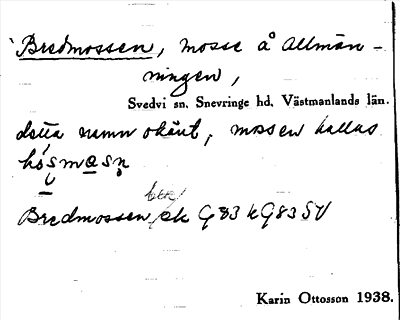 Bredmossen, mosse å Allmän-
ningen,
Svedvi sn. Snevringe hd. Västmanlands län.
detta namn okänt, mossen kallas
hósmasn
Bredmossen ek G83 kG83SV
Karin Ottosson 1938.